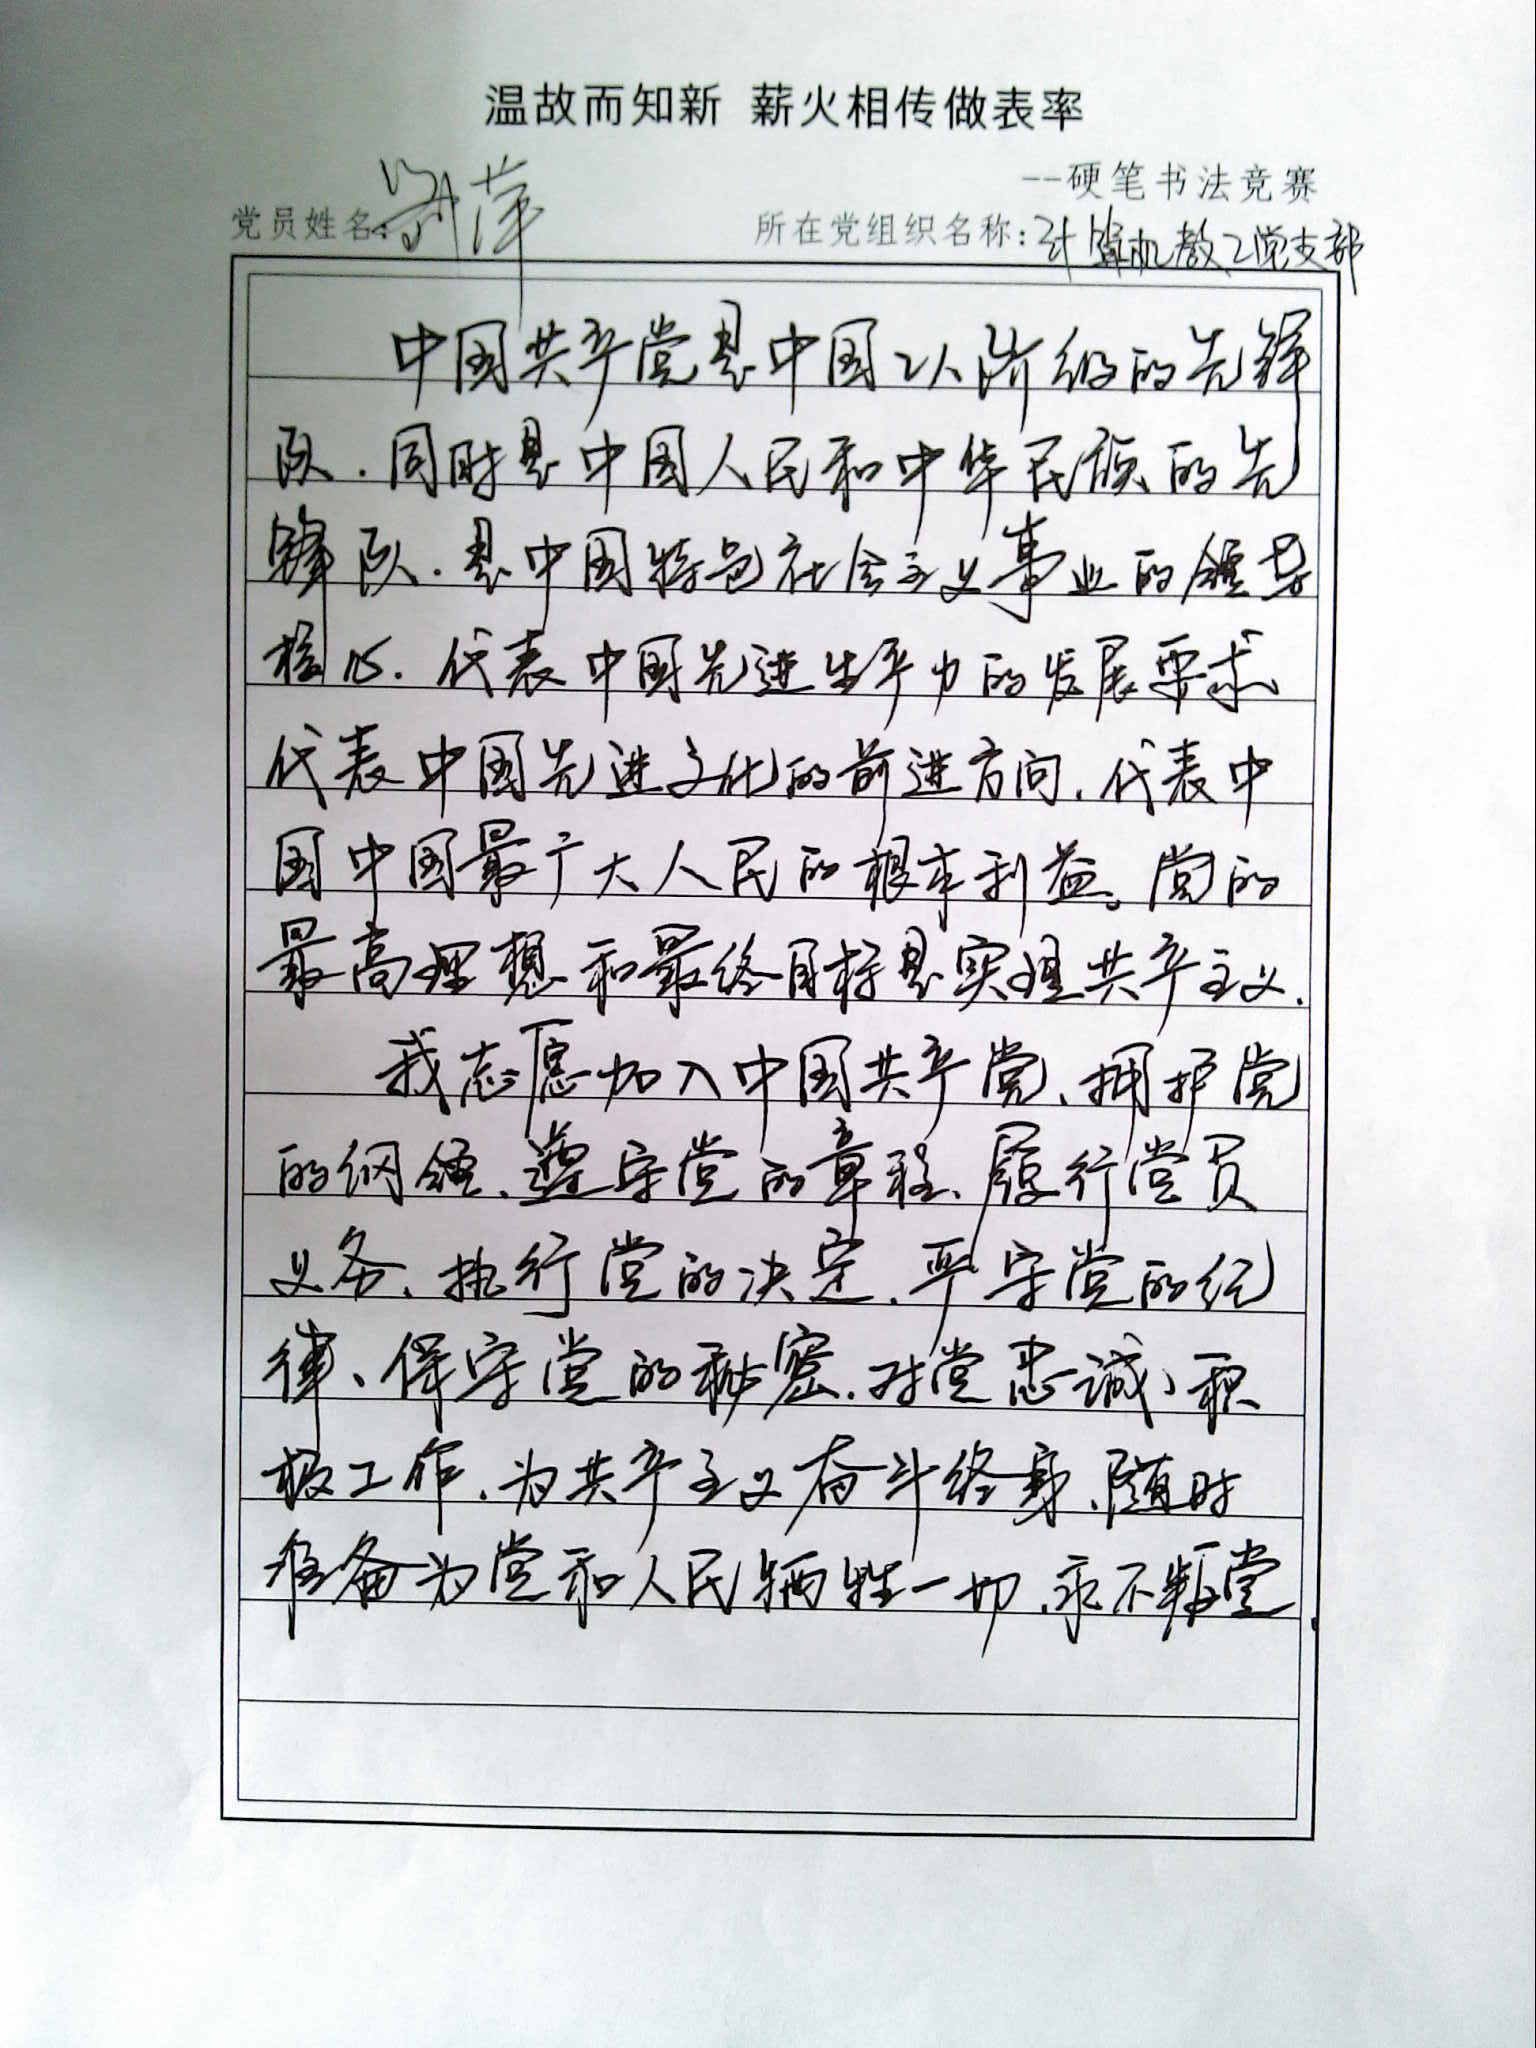 温故而知新 薪火相传做表率
--硬笔书法竞赛
党员姓名: 萍 所在党组织名称:计算机教工党支部
中国共产党是中国工人阶级的先锋
队.同时是中国人民和中华民族的先
锋队.是中国特色社会主义事业的领导
核心.代表中国先进生产力的发展要求、
代表中国先进文化的前进方向、代表中
国中国最广大人民的根本利益。党的
最高理想和最终目标是实现共产主义.
我志愿加入中国共产党、拥护党
的纲领、遵守党的章程、履行党员
义务、执行党的决定、严守党的纪
律、保守党的秘密.对党忠诚、积
极工作、为共产主义奋斗终身、随时
准备为党和人民牺牲一切、永不叛党